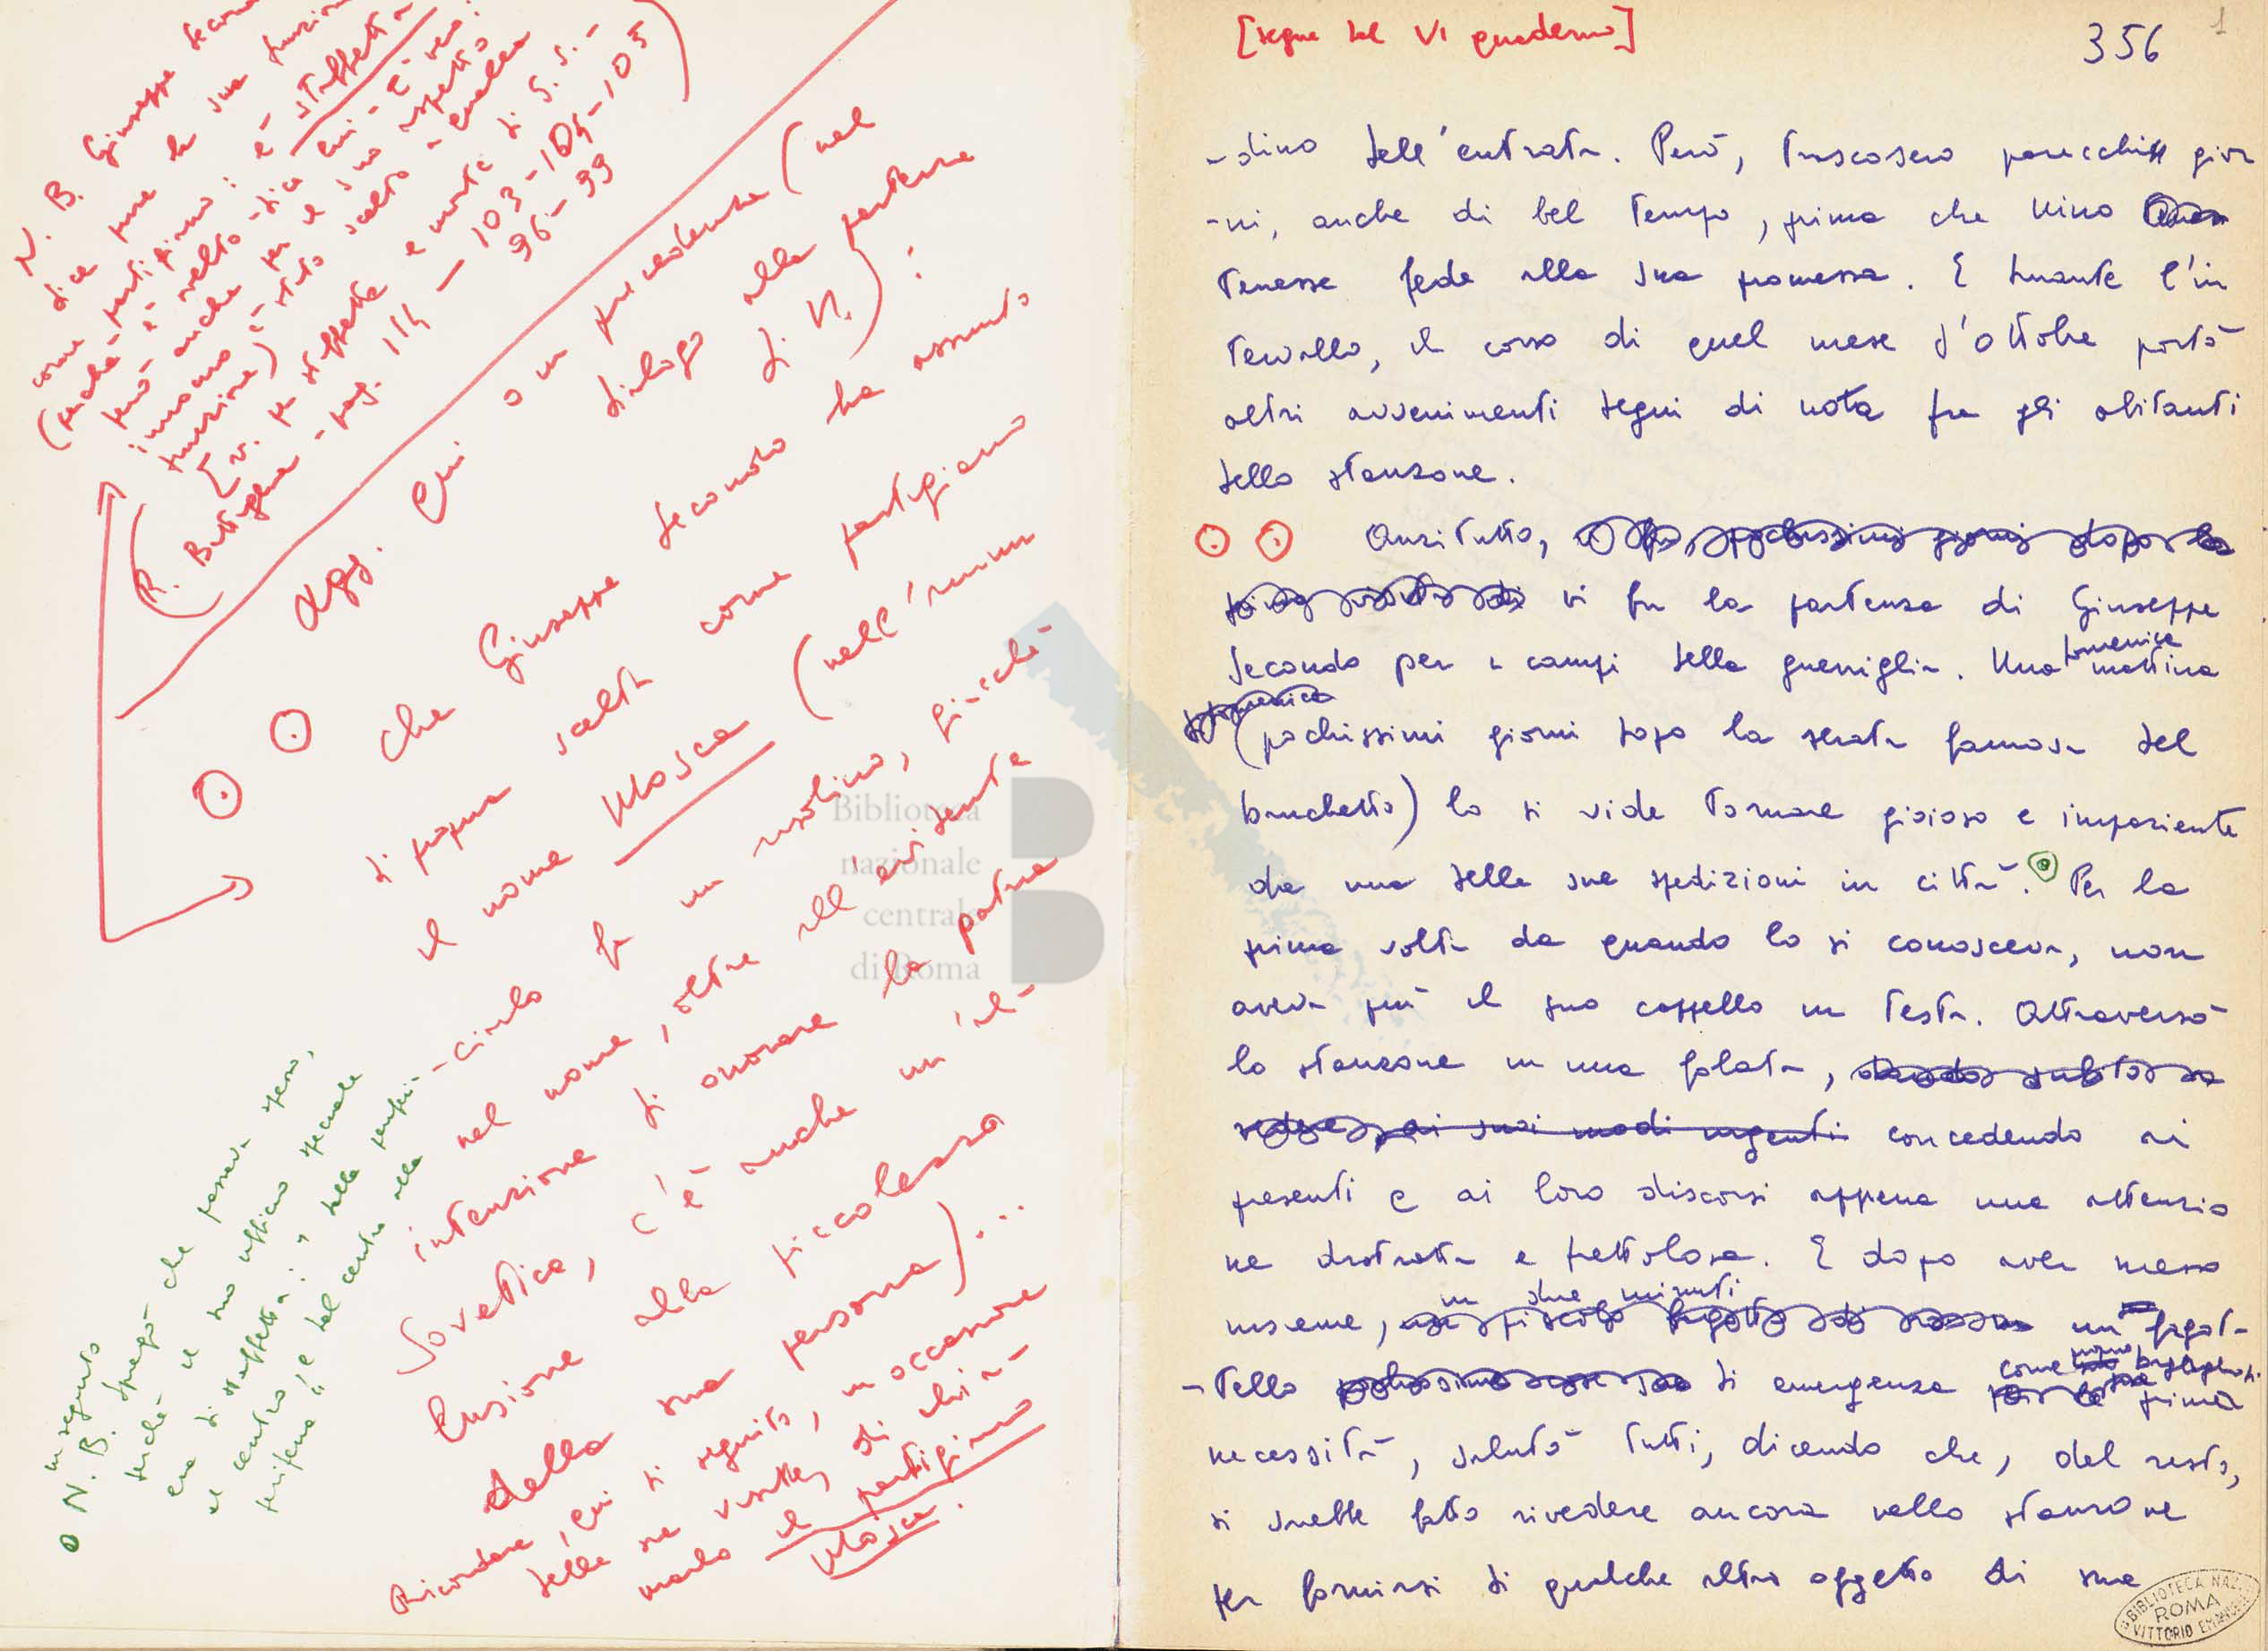 N. B. Giuseppe Secondo
dice pure la sua funzione
come partigiano: è staffetta
però anche per il suo aspetto
(R. Battaglia - pag. 114 - 103-104-105)
96-99
Agg. Qui o in precedenza (nel
dialogo alla partenza
di N.) :
che Giuseppe Secondo ha assunto
di propria scelta come partigiano
il nome Mosca (nell'
-cirlo fa un risolino, giacché
nel nome, oltre all'evidente
intenzione di onorare la patria
Sovettica, c'è anche un'al-
lusione alla piccolezza
della sua persona)...
Ricordare, qui di seguito, in occasione
delle sue visite, di chia-
marlo il partigiano
Mosca.
in seguito
N. B. spiegò che passava spesso,
perché il suo ufficio speciale
era di staffetta: " dalla periferia
il centro
periferia" e dal centro alla
Biblioteca
nazionale
centrale
di Roma
[segue dal VI quaderno]
356
1
-dino dell'entrata. Però, trascorsero parecchi gior
-ni, anche di bel tempo, prima che Nino
tenesse fede alla sua promessa. E durante l'in
tervallo, il corso di quel mese d'ottobre portò
altri avvenimenti degni di nota fra gli abitanti
dello stanzone.
Anzitutto, pochissimi giorni dopo la
vi fu la partenza di Giuseppe
Secondo per i campi della guerriglia. Una domenica mattina
domenica
(pochissimi giorni dopo la serata famosa del
banchetto) lo si vide tornare gioioso e impaziente
da una delle sue spedizioni in città. Per la
prima volta da quando lo si conosceva, non
aveva più il suo cappello in testa. Attraversò
lo stanzone in una folata, dando subito a
vedere, ai suoi modi urgenti concedendo ai
presenti e ai loro discorsi appena una attenzio
ne distratta e frettolosa. E dopo aver messo
insieme, in due minuti un fagot-
-tello di emergenza come bagaglio di
prima
necessità, salutò tutti, dicendo che, del resto,
si sarebbe fatto rivedere ancora nello stanzone
per fornirsi di qualche altro oggetto di sua
BIBLIOTECA NAZ
ROMA
VITTORIO EMANUELE